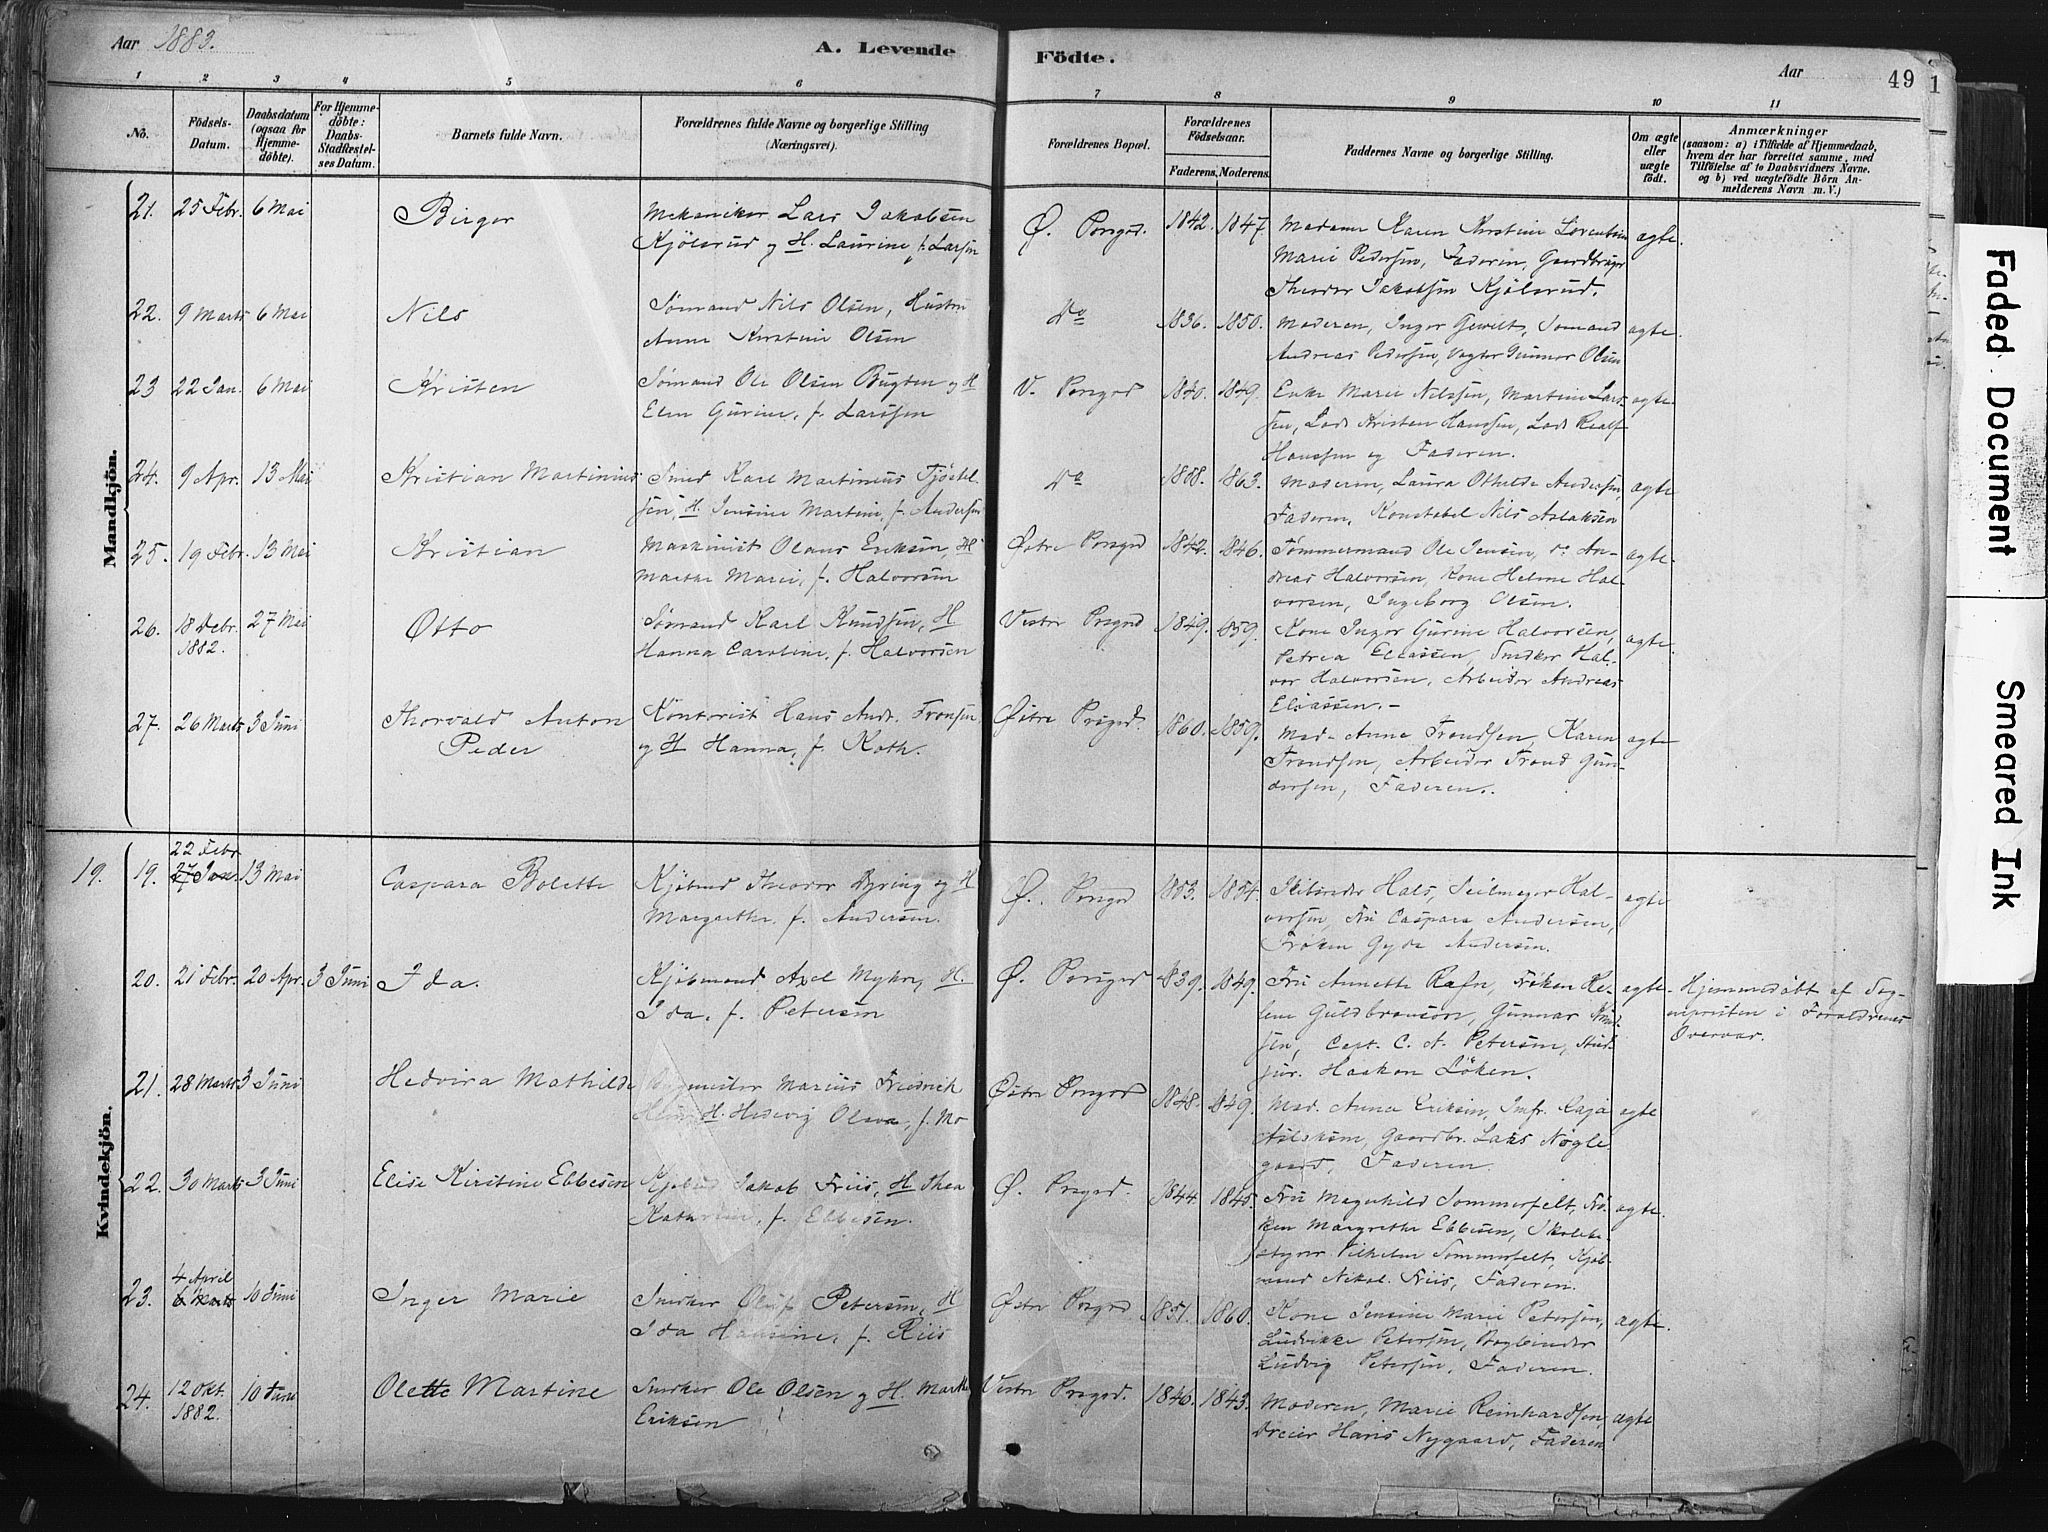 Aar 1883.
A. Levende Födte.
Aar
49
1
1 2 3 4 5 6 7 8 9 10 11
No.
Födsels-
Datum.
Daabsdatum
(ogsaa for
Hjemme-
döbte).
For Hjemme-
döbte:
Daabs-
Stadfæstel-
ses Datum.
Barnets fulde Navn.
Forældrenes fulde Navne og borgerlige Stilling
(Næringsvei).
Forældrenes Bopæl.
Forældrenes
Födselsaar.
Faderens. Moderens.
Faddernes Navne og borgerlige Stilling.
Om ægte
eller
uægte
födt.
Anmærkninger
(saasom: a) i Tilfælde af Hjemmedaab,
hvem der har forrettet samme, med
Tilföielse af to Daabsvidners Navne.
og b) ved uægtefödte Börn An-
melderens Navn m. V.)
Mandkjön.
21. 25 Febr. 6 Mai Birger
Mekaniker Lars Jakobsen
Kjölsrud og H. Laurine f. Larsen
Ø. Porsgrd. 1842. 1847.
Madame Karen Kirstine
Marie Pedersen, Faderen, Gaardbruger
Theodor Jakobsen Kjölsrud.
ægte.
22. 9 Marts 6 Mai Nils
Sömand Nils Olsen, Hustru
Anne Kirstine Olsen
Do 1836. 1850.
Moderen, Inger Gewilt, Sömand
Andreas Pedersen, Vægter Gunner Olsen
ægte.
23 22 Jan. 6 Mai Kristen
Sömand Ole Olsen Bugten og H
Elen Gurine, f. Larssen
V. Porsgrd 1840. 1849.
Enke Marie Nilssen, Martine Lars-
sen, Lods Kristen Hanssen, Lods Realf
Hanssen og Faderen.
ægte.
24. 9 Apr. 13 Mai Kristian Martinius
Smed Karl Martinius
sen, H. Jensine Martine, f. Andersen
Do 1858. 1863.
Moderen, Laura Othilde Andersen,
Faderen, Konstabel Nils Aslaksen
ægte
25. 19 Febr. 13 Mai Kristian
Maskinist Olaus Eriksen, H
Marthe Marie, f. Halvorsen
Østre Porsgrd 1842. 1846.
Tømmermand Ole Jensen, do An-
dreas Halvorsen, Kone Helene Hal-
vorsen, Ingeborg Olsen.
ægte.
26. 18 Debr. 27 Mai Otto
1882.
Sømand Karl Knudsen, H
Hanna Caroline, f. Halvorsen
Vestre Prsgrd 1849. 1859.
Kone Inger Gurine Halvorsen,
Petrea Eliassen, Snedker Hal-
vor Halvorsen, Arbeider Andreas
Eliassen.-
ægte.
27. 26 Marts 3 Juni Thorvald Anton
Peder
Kontorist Hans Andr. Tronsen
og H Hanna, f. Roth.
Østre Prsgrd. 1860. 1859.
Mad. Anne Trondsen, Karen
Trondsen, Arbeider Trond Gun-
dersen, Faderen.
ægte
Kvindekjön.
19. 19. 22 Febr
27 Jan. 13 Mai Caspara Bolette
Kjöbmd Theodor Dyring og H
Margrethe, f. Andersen.
Ø. Porsgrd 1853. 1854.
Skibsreder Hals, Seilmager Hal-
vorsen, Fru Caspara Andersen,
Frøken Gyda Andersen.
ægte
20. 21 Febr. 20 Apr. 3 Juni Ida.
Kjöbmand Axel Myhre, H.
Ida, f. Petersen
Ø. Porsgrd 1839. 1849.
Fru Annette Rafn, Frøken He-
lene Guldbransøn, Gunnar Knud-
sen, Capt. C. A. Petersen, Stud.
jur. Haakon Löken.
ægte
Hjemmedöbt af Sog-
nepresten i Forældrenes
Overvær.
21. 28 Marts 3 Juni Hedvira Mathilde
Bygmester Marius Friedrich
H. Hedevig Olava, f. Mo
Østre Porsgrd 1848. 1849
Mad. Anna Eriksen, Jmfr. Caja
Aslaksen, Gaardbr. Lars Nøgle-
gaard, Faderen.
ægte
22. 30 Marts 3 Juni Elise Kirstine Ebbesen
Kjöbmd Jakob Friis, H Thea
Kathrine, f. Ebbesen.
Ø. Prsgrd. 1844. 1845.
Fru Magnhild Sommerfelt, Frø-
ken Margrethe Ebbesen, Skolebe-
styrer Vilhelm Sommerfelt, Kjöb-
mand Nikol. Friis, Faderen.
ægte.
23. 4 April
6 Marts 10 Juni Inger Marie
Snedker Oluf Petersen, H
Ida Hansine, f. Riis
Østre Porsgrd 1851. 1860.
Kone Jensine Marie Petersen,
Ludvikke Petersen, Bogbinder
Ludvig Petersen, Faderen.
ægte.
24. 12 Okt. 10 Juni Olette Martine
1882.
Snedker Ole Olsen og H. Marthe
Eriksen
Vestre Prsgrd. 1840. 1843.
Moderen, Marie Reinhardsen,
Dreier Hans Nygaard, Faderen
ægte
Faded Document
Smeared Ink